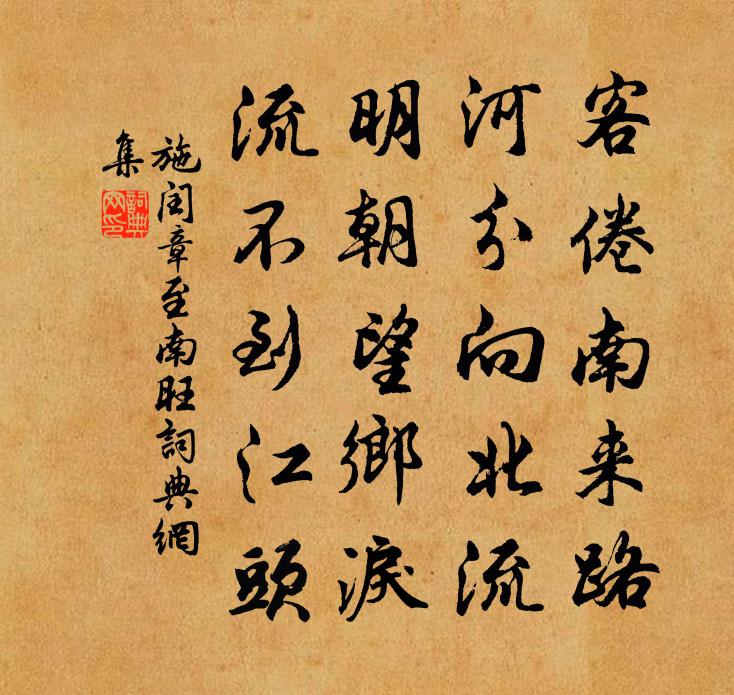 客倦南来路
河分向北流
明朝望鄉淚
流不到江頭
施闰章至南旺詞典網
集
詞典网印